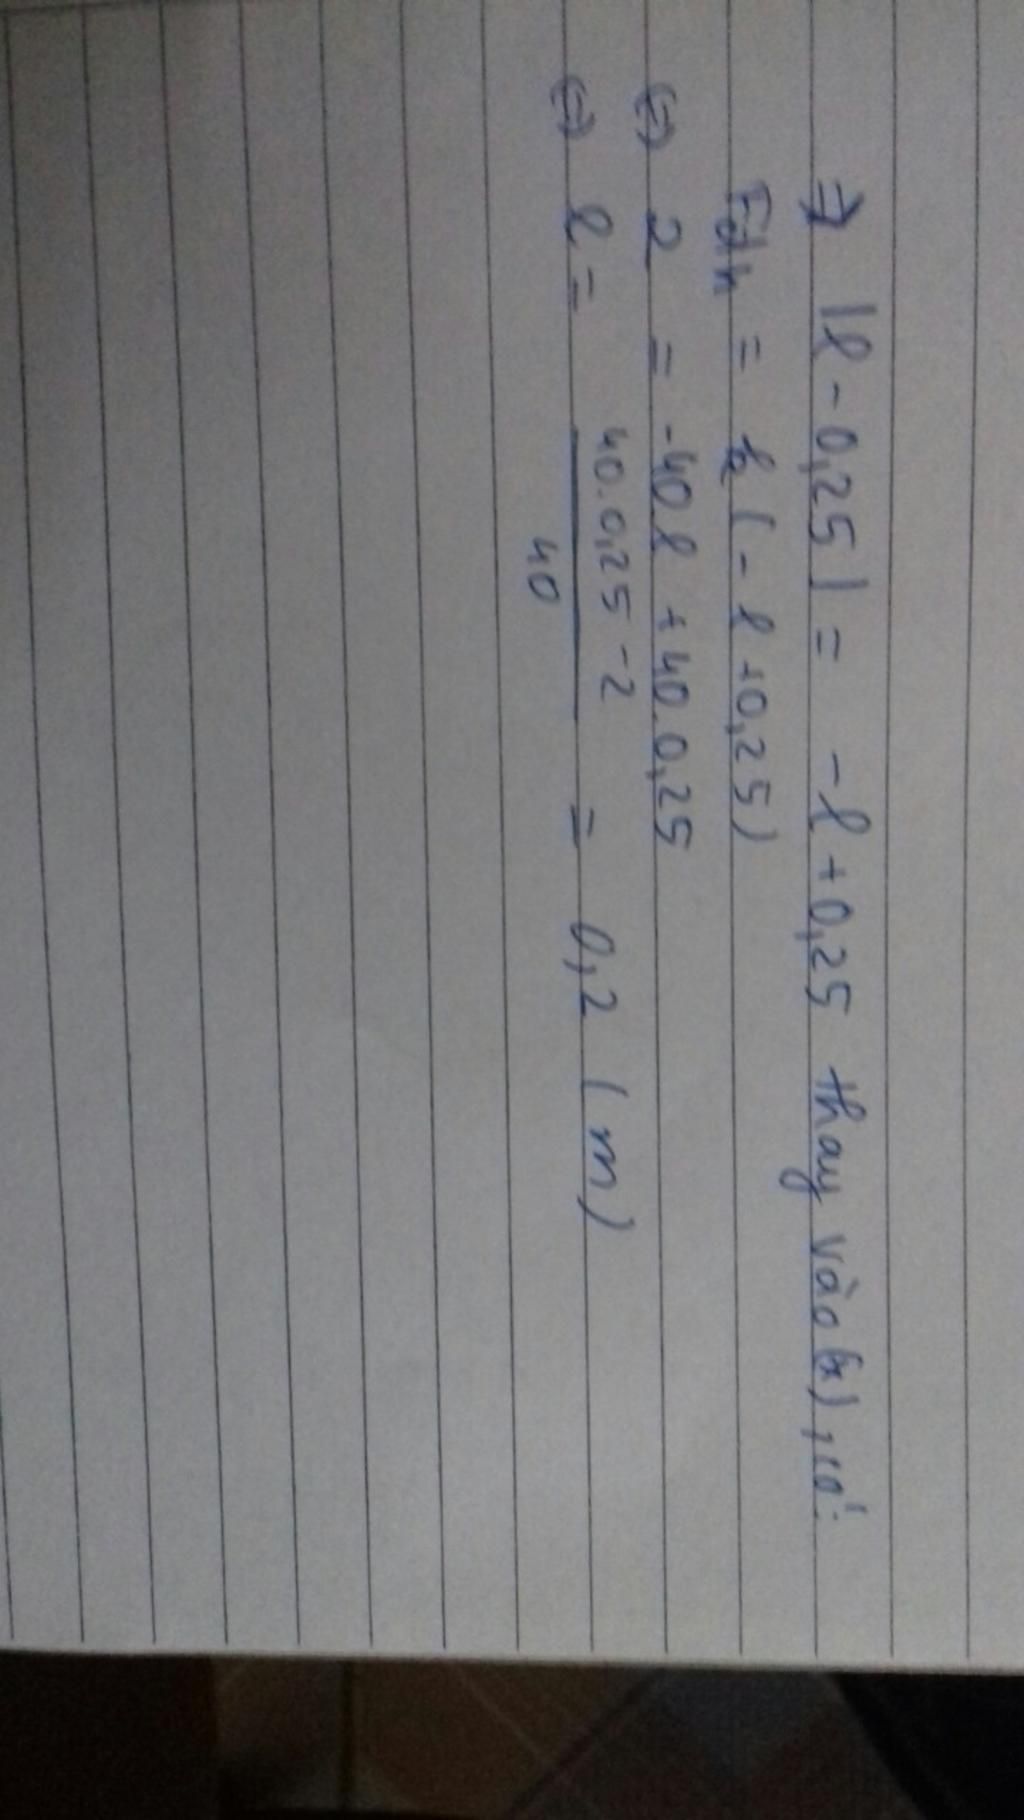 => |l - 0,25| = -l + 0,25 thay vào (*), có:
Fđh = k (-l + 0,25)
<=> 2 = -40l + 40.0,25
<=> l = \frac{40.0,25 - 2}{40} = 0,2 (m)